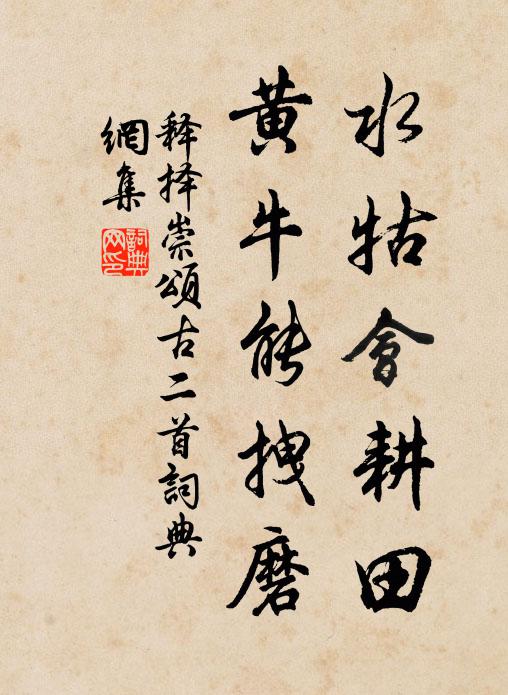 水牯會耕田
黄牛能拽磨
释择崇頌古二首詞典
網集
詞典
网印